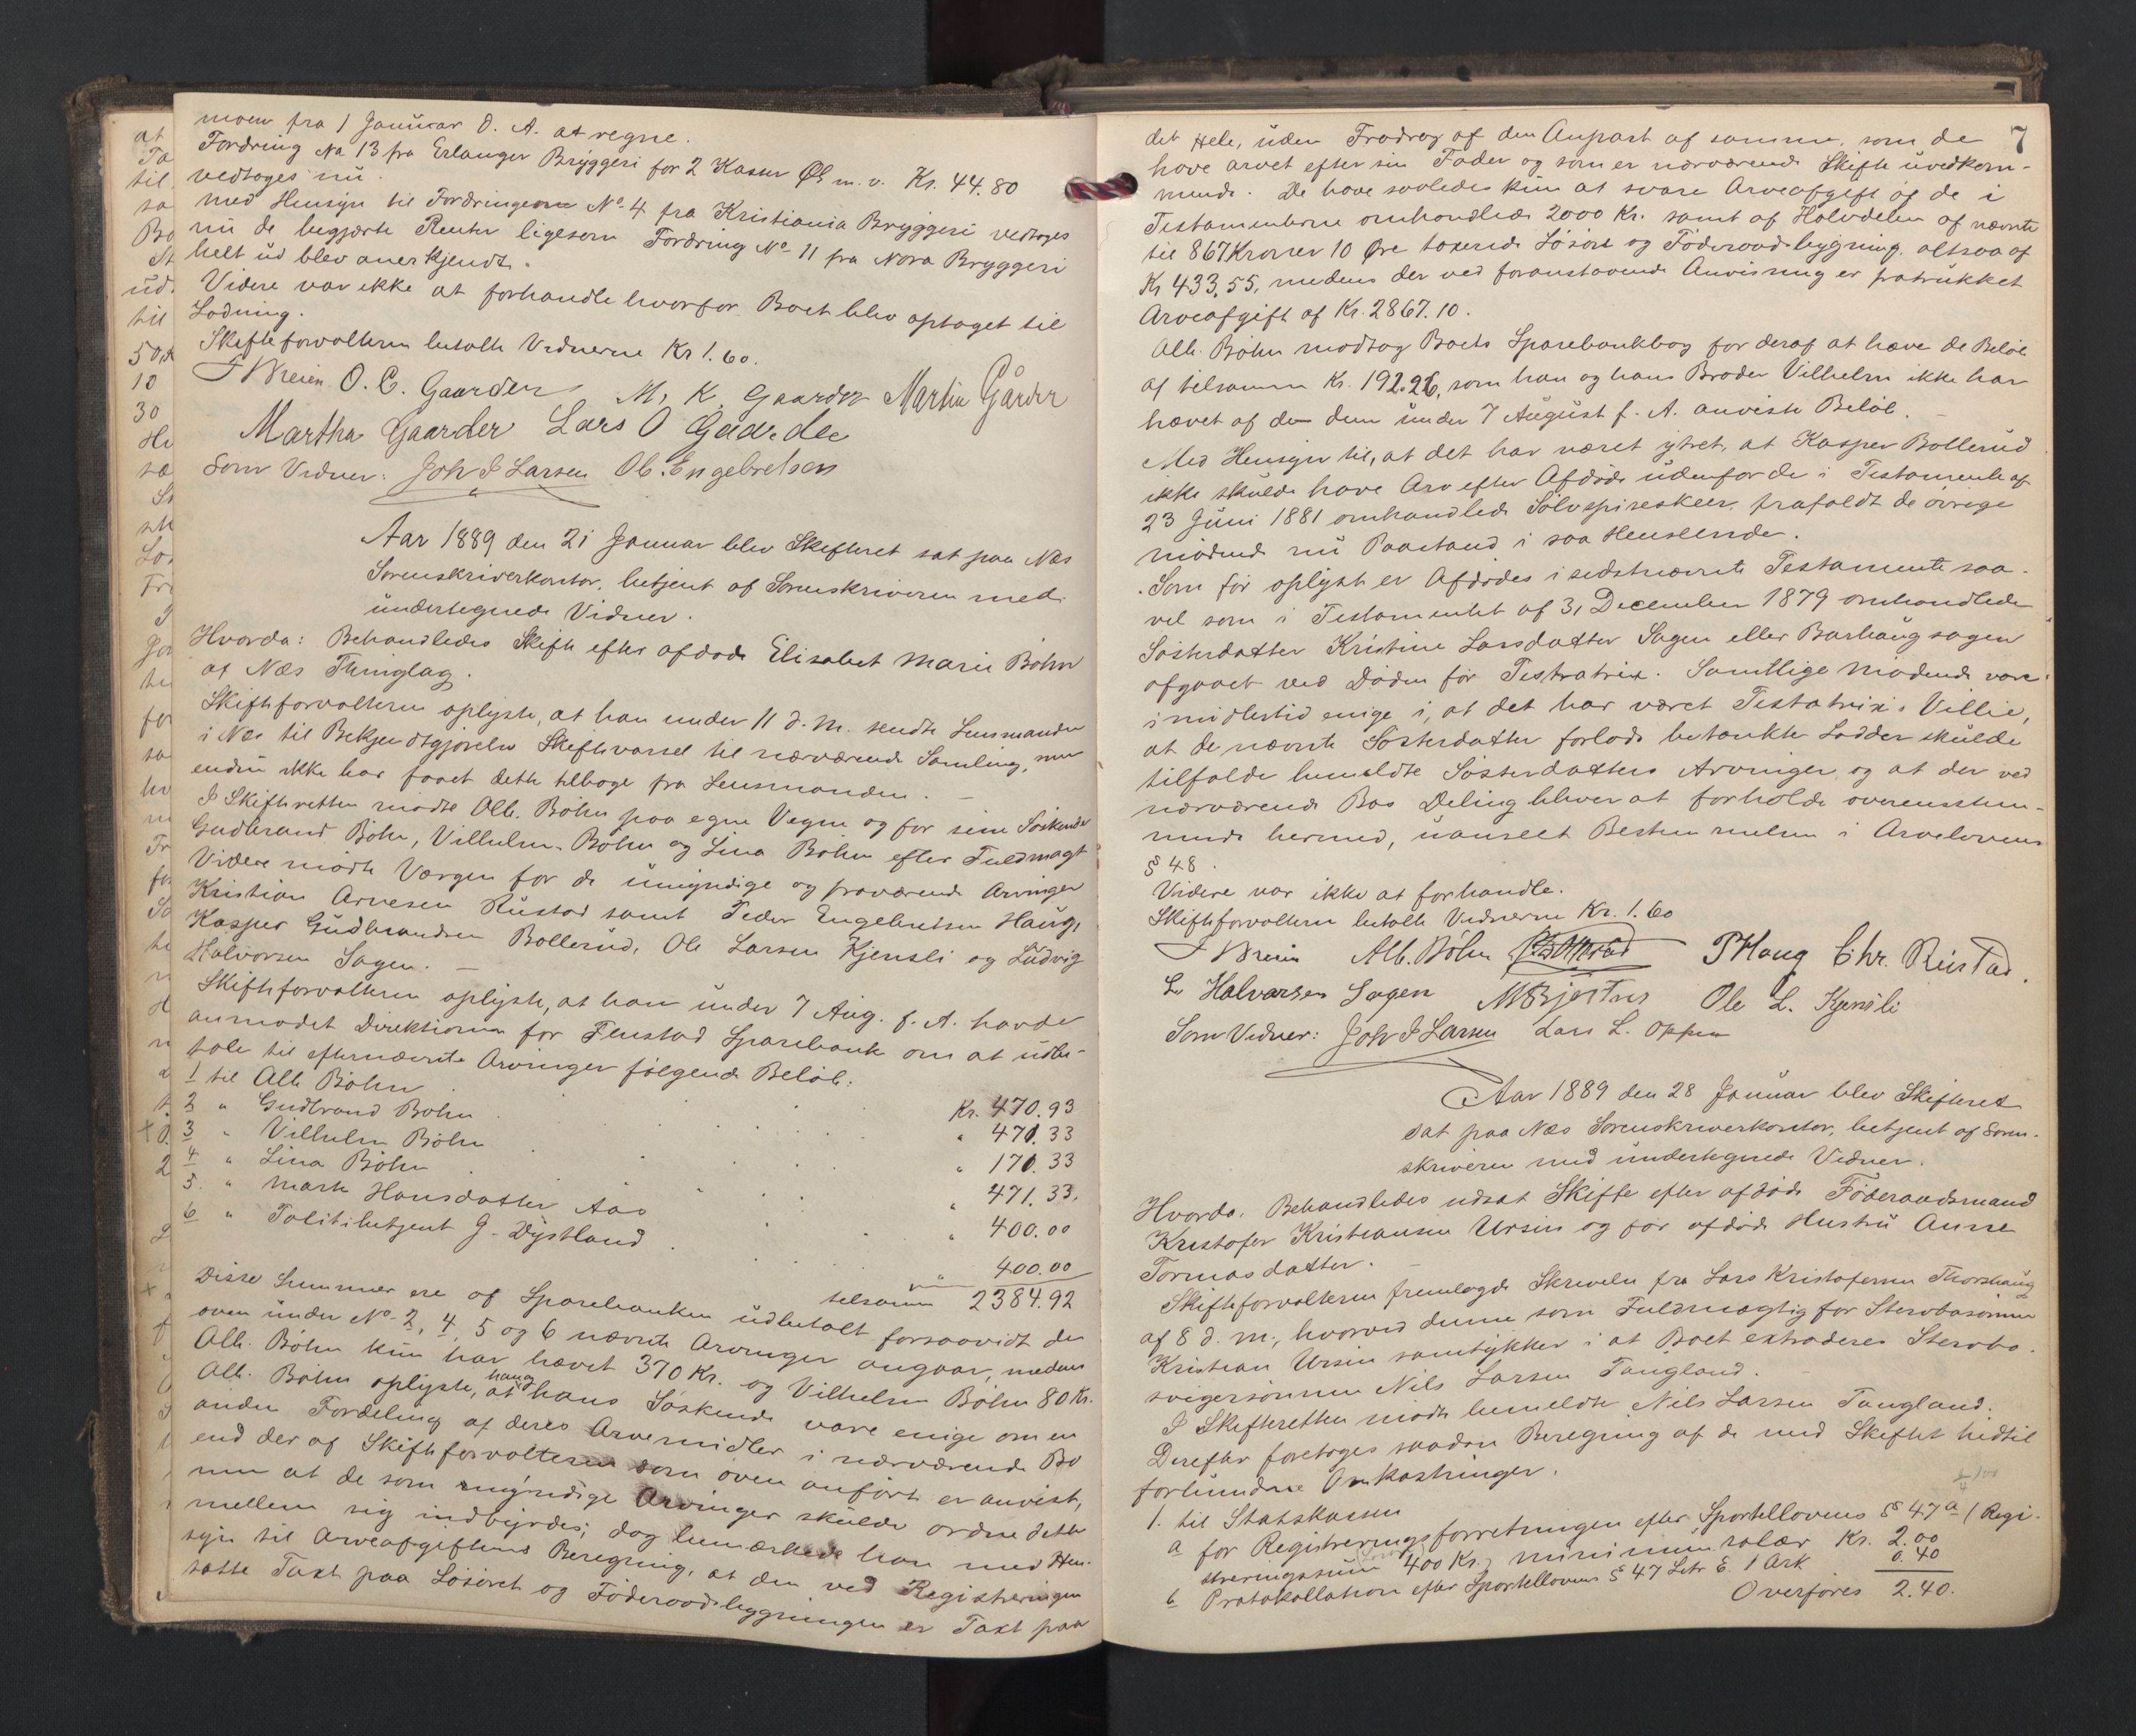 moen fra 1 Januar d. A. at regne.
Fordring No 13 fra Erlanger Bryggeri for 2 Kasser Øl m. v. Kr. 44.80
vedtoges nu.
Med Hensyn til Fordringerne No 4 fra Kristiania Bryggeri vedtoges
nu de begjærte Renter ligesom Fordring No 11 fra Nora Bryggeri
helt ud blev anerkjendt.
Videre var ikke at forhandle hvorfor Boet blev optaget til
Lodning.
Skifteforvalteren betalte Vidnerne Kr 1.60.
O. C. Gaarder M. K. Gaarder Martin Gårder
Martha Gaarder Lars O Gaarder
Som Vidner: Joh J Larsen Ol. Engebretsen
Aar 1889 den 21 Januar blev Skifteret sat paa Næs
Sorenskriverkontor, betjent af Sorenskriveren med
undertegnede Vidner.
Hvorda: Behandledes Skifte efter afdøde Elisabet Marie Bøhn
af Næs Thinglag.
Skifteforvalteren oplyste, at han under 11 d. M. sendte Lensmanden
i Næs til Bekjendtgjørelse Skiftevarsel til nærværende Samling, men
endnu ikke har faaet dette tilbage fra Lensmanden. –
I Skifteretten mødte Alb. Bøhn paa egne Vegne og for sine Søskende
Gudbrand Bøhn, Vilhelm Bøhn og Lina Bøhn efter Fuldmagt
Videre mødte Værgen for de umyndige og fraværende Arvinger
Kristian Arnesen Rustad samt Peder Engebretsen Haug,
Kasper Gudbrandsen Bollerud, Ole Larsen Kjensli og Ludvig
Halvorsen Sagen. –
Skifteforvalteren oplyste, at han under 7 Aug. f. A. havde
anmodet Direktionen for Fenstad Sparebank om at udbe-
tale til efternævnte Arvinger følgende Beløb:
1 til Alb Bøhn Kr. 470.93
2 " Gudbrand Bøhn " 471.33
3 " Vilhelm Bøhn " 171.33
4 " Lina Bøhn " 471.33.
5. " Marte Hansdatter Aas " 400.00
6 " Politibetjent G. Dystland " 400.00
tilsammen 2384.92
Disse Summer ere af Sparebanken udbetalt forsaavidt de
oven under No 2, 4, 5 og 6 nævnte Arvinger angaar, medens
Alb. Bøhn kun har hævet 370 Kr. og Vilhelm Bøhn 80 Kr.
Alb. Bøhn oplyste, at han og hans Søskende vare enige om en
anden Fordeling af deres Arvemidler i nærværende Bo
end der af Skifteforvalteren som oven anført er anvist,
men at de som myndige Arvinger skulde ordne dette
mellem sig indbyrdes; dog bemærkede han med Hen-
syn til Arveafgiftens Beregning, at den ved Registreringen
satte Taxt paa Løsøret og Føderaadsbygningen er Taxt paa
7
det Hele, uden Fradrag af den Anpart af samme, som de
have arvet efter sin Fader og som er nærværende Skifte uvedkom-
mende. De have saaledes kun at svare Arveafgift af de i
Testamenterne omhandlede 2000 Kr. samt af Halvdelen af nævnte
til 867 Kroner 10 Øre taxerede Løsøre og Føderaadsbygning, altsaa af
Kr 433.55, medens der ved foranstaaende Anvisning er fratrukket
Arveafgift af Kr. 2867.10.
Alb. Bøhn modtog Boets Sparebankbog for deraf at hæve de Beløb
af tilsammen Kr. 192.26, som han og hans Broder Vilhelm ikke har
hævet af de dem under 7 August f. A. anviste Beløb. –
Med Hensyn til, at det har været ytret, at Kasper Bollerud
ikke skulde have Arv efter Afdøde udenfor de i Testamente af
23 Juni 1881 omhandlede Sølvspiseskeer, frafaldt de øvrige
mødende nu Paastand i saa Henseende.
Som før oplyst er Afdødes i sidstnævnte Testamente saa-
vel som i Testamentet af 31 December 1879 omhandlede
Søsterdatter Kristine Larsdatter Sagen eller Barhaugsagen
afgaaet ved Døden før Testratrix. Samtlige mødende vare
imidlertid enige i, at det har været Testatrix's Villie,
at de nævnte Søsterdatter forlods betænkte Lodder skulde
tilfalde bemeldte Søsterdatters Arvinger, og at der ved
nærværende Bos Deling bliver at forholde overensstem-
mende hermed, uanseet Bestemmelsen i Arvelovens
§ 48.
Videre var ikke at forhandle.
Skifteforvalteren betalte Vidnerne Kr. 1.60
Alb. Bøhn P Haug Chr. Rustad.
L. Halvorsen Sagen Ole L. Kjensli
Som Vidner: Joh J Larsen Lars L. Oppen
Aar 1889 den 28 Januar blev Skifteret
sat paa Næs Sorenskriverkontor, betjent af Soren-
skriveren med undertegnede Vidner.
Hvorda. Behandledes udsat Skifte efter afdøde Føderaadsmand
Kristofer Kristiansen Ursin og før afdøde Hustru Anne
Tormasdatter. –
Skifteforvalteren fremlagde Skrivelse fra Lars Kristofersen Thorshaug
af 8 d. M., hvorved denne som Fuldmægtig for Stervbosønnen
Kristian Ursin samtykker i at Boet extraderes Stervbo-
svigersønnen Nils Larsen Tangland. –
I Skifteretten mødte bemeldte Nils Larsen Tangland.
Derefter foretoges saadan Beregning af de med Skiftet hidtil
forbundne Omkostninger.
1. til Statskassen
a for Registreringsforretningen efter Sportellovens § 47 a (Regi-
streringssum 400 Kr.) minimumsalær Kr. 2.00
b Protokollation efter Sportellovens § 47 Litr E. 1 Ark 0.40
Overføres 2.40.